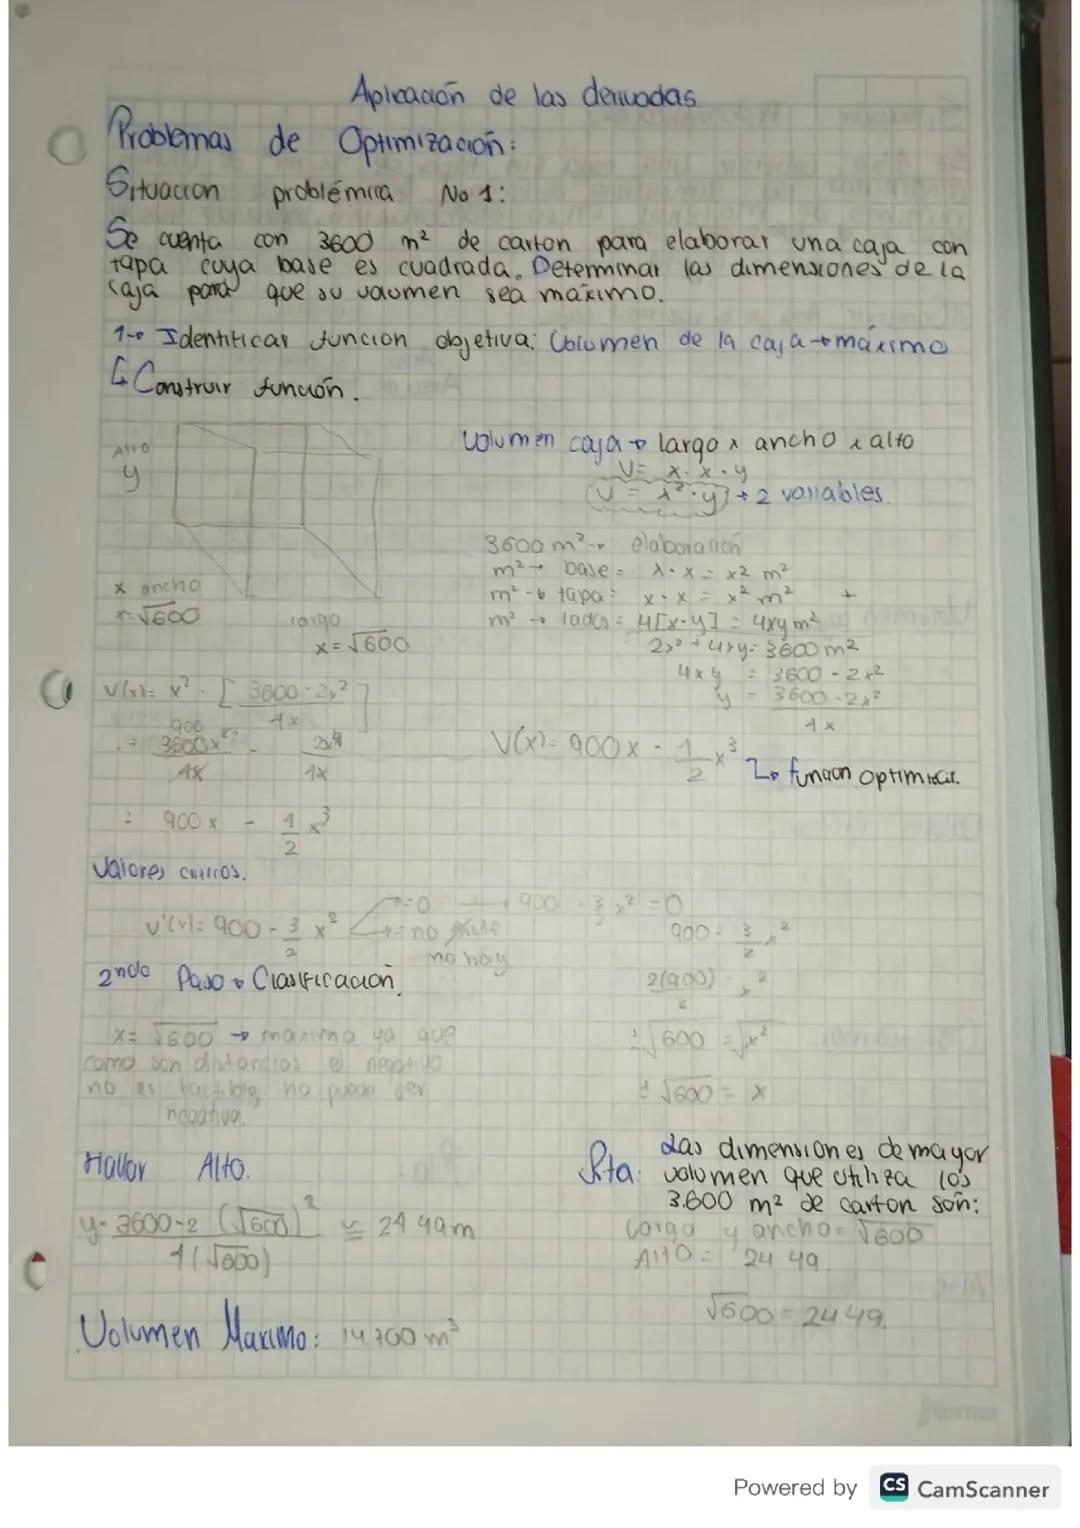 Aplicación de las derivadas
Problemas de Optimización:
Situación problémica No 1:
Se cuenta con 3600 m² de carton para elaborar una caja con
tapa cuya base es cuadrada. Determinar las dimensiones de la
caja para que su volumen sea maximo.
1→ Identificar funcion objetiva: Volumen de la caja → maximo
↳ Construir función.
Alto
y
x ancho
x=√600
largo
x=√600
Volumen caja → largo x ancho x alto
V= x·x·y
V = x²·y → 2 variables.
3600 m² → elaboración
m² → base = x·x = x² m²
m² → tapa: x·x = x² m² +
m² → lados = 4[x·y] = 4xy m²
2x² + 4xy = 3600 m²
4xy = 3600 - 2x²
y = 3600 - 2x²
4x
V(x)= x² · [3600-2x²]
4x
900
= 3600x² -
4x 4x
V(x)= 900x - 1/2 x³
↳ funcion optimizar.
= 900x - 1/2 x³
Valores criticos.
V'(x)= 900 - 3/2 x²
=0 → 900 - 3/2 x² = 0
= no existe
no hay
900 = 3/2 x²
2(900) = x²
3
±√600 = √x²
±√600 = x
2ndo Paso → Clasificación.
x= √600 → maximo ya que
como son distancias el negativo
no es factible, no puede ser
negativa.
Hallar Alto.
y= 3600-2(√600)² ≈ 24 49m
4(√600)
Rta: Las dimensiones de mayor
volumen que utiliza los
3.600 m² de carton son:
Largo y ancho= √600
Alto = 24 49
√600 = 24 49.
Volumen Maximo: 14.700 m³
Powered by CS CamScanner